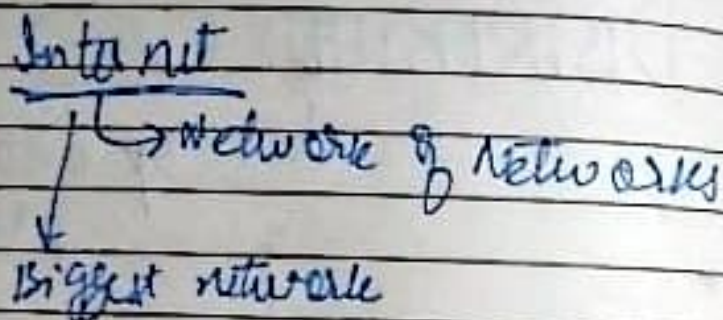 Internet
Network of Networks
Biggest network